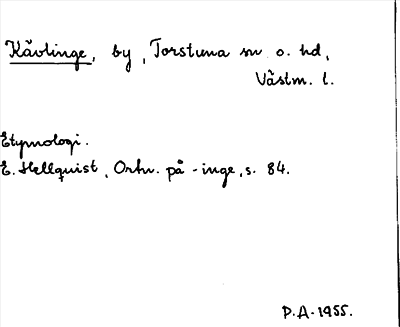 Kävlinge, by, Torstuna sn o. hd,
Västm. l.
Etymologi.
E. Hellquist, Ortn. på -inge, s. 84.
P.A. 1955.